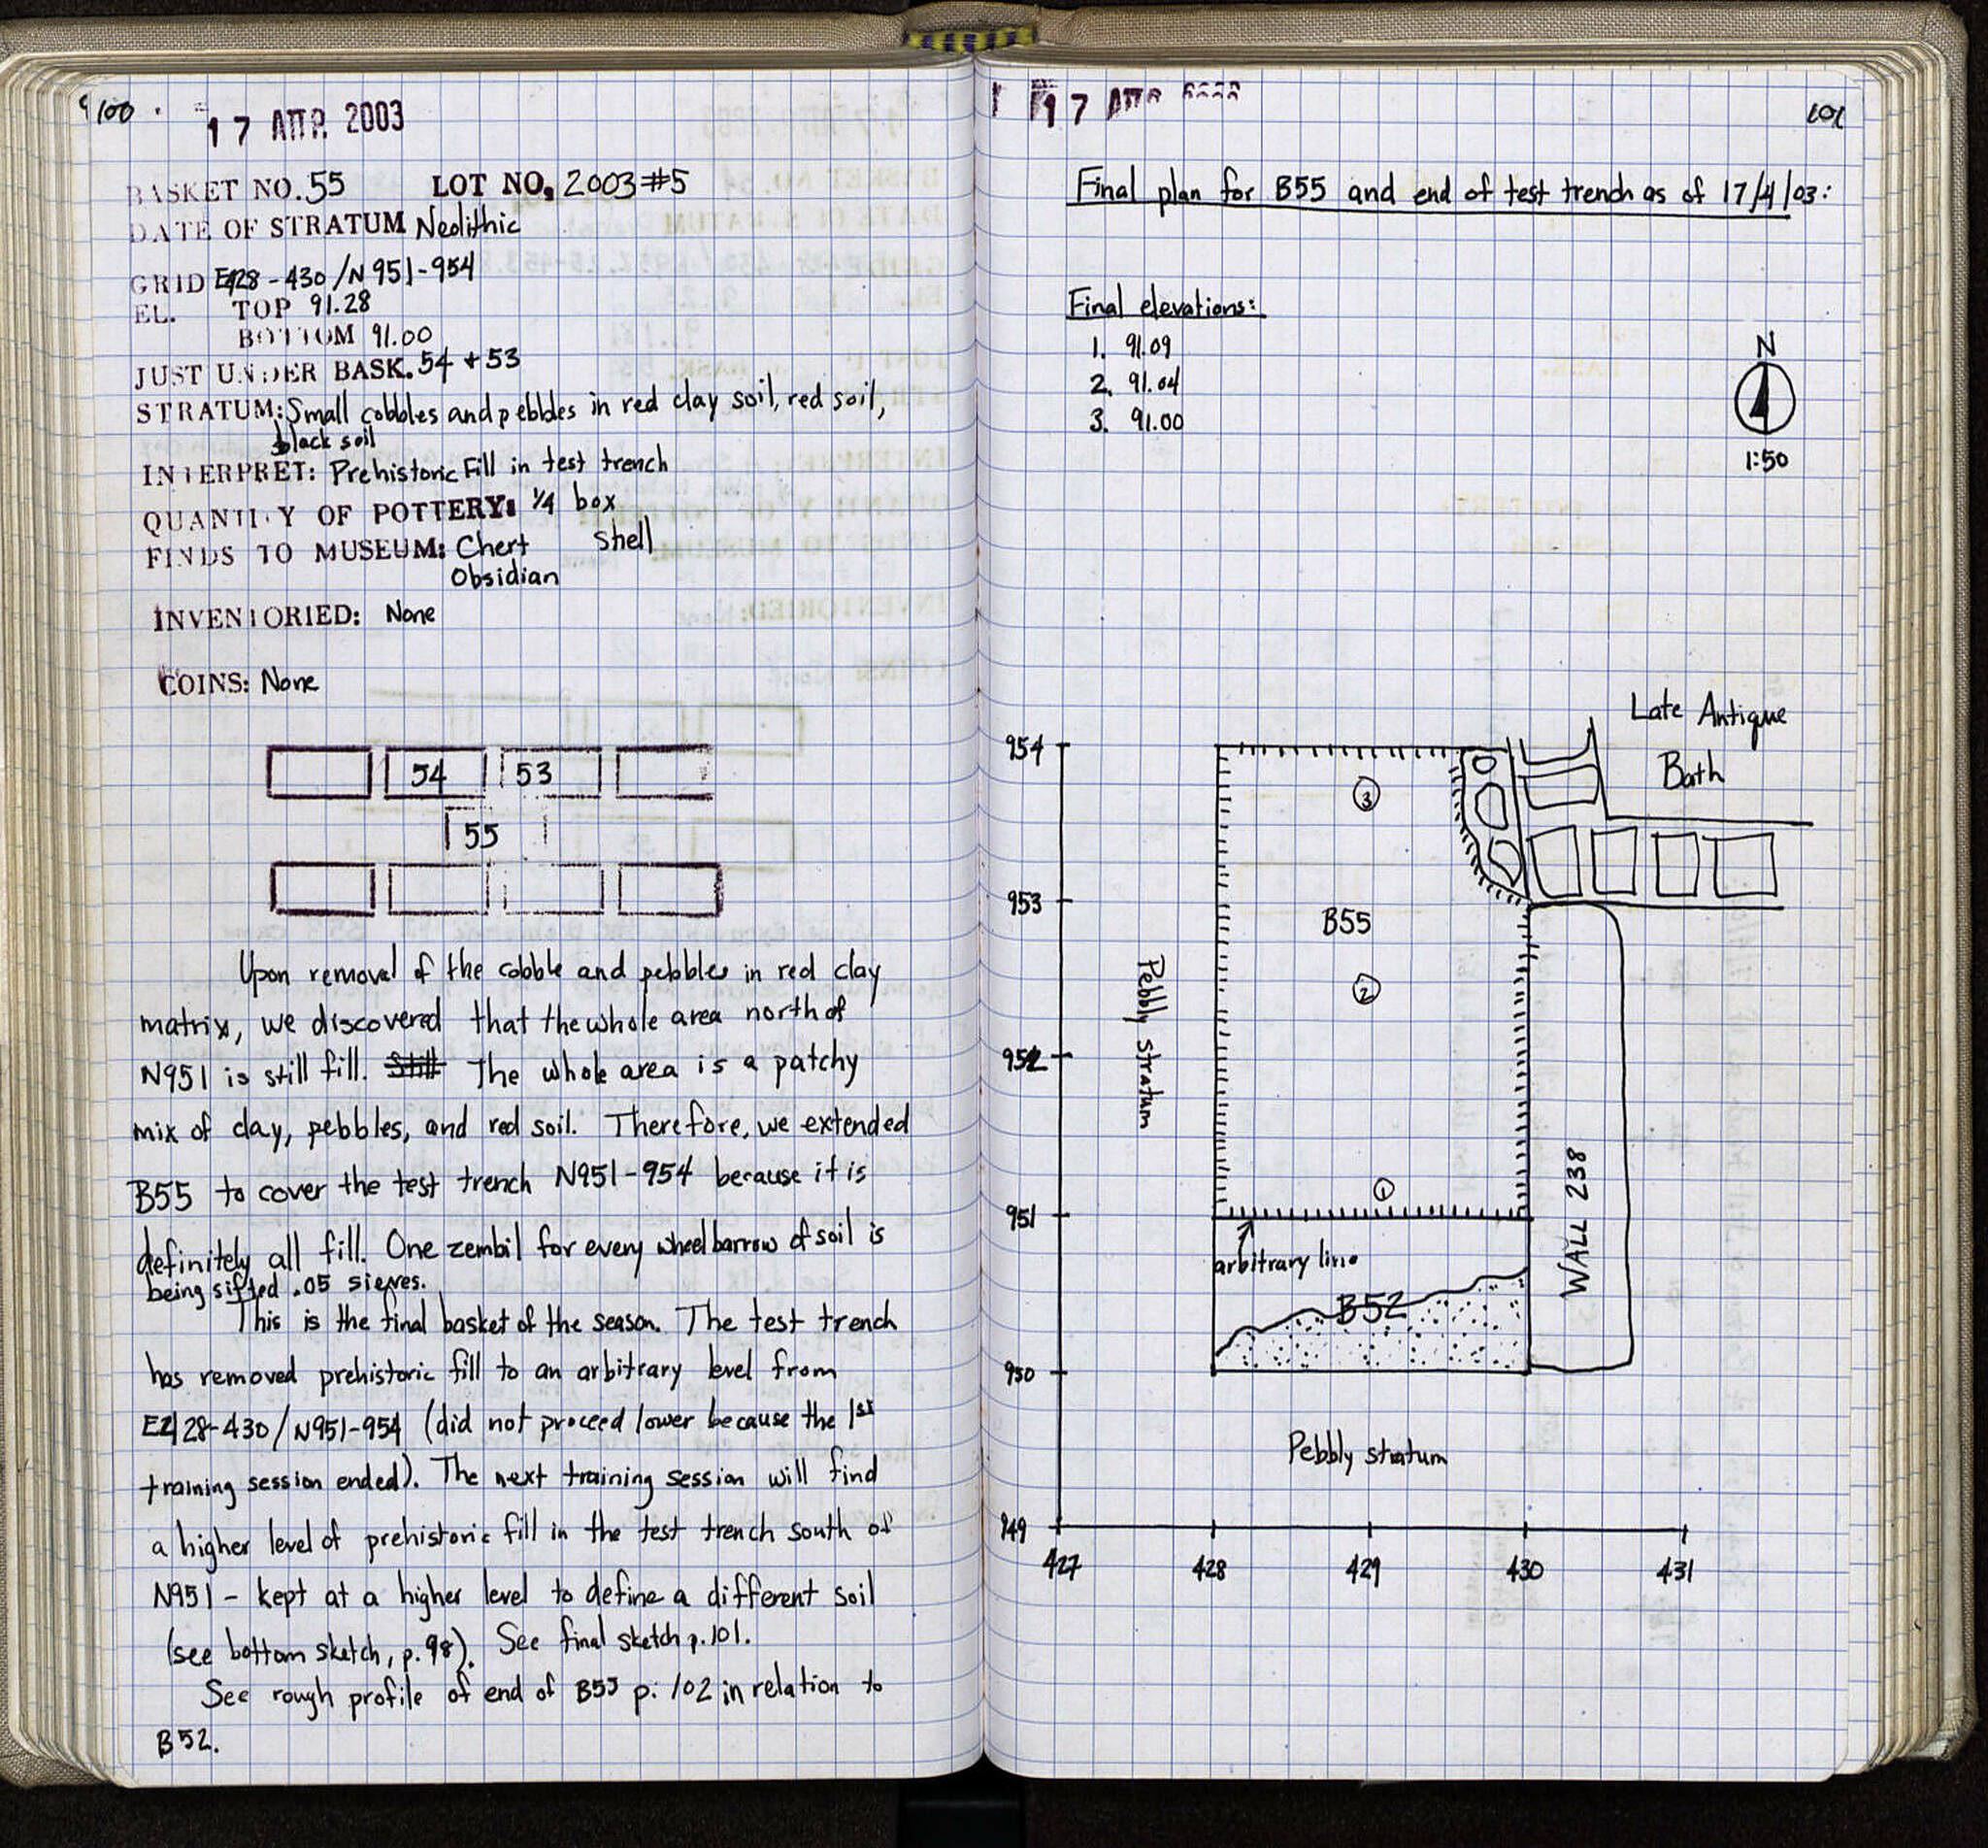 100
17 ΑΠΡ. 2003
BASKET NO. 55 LOT NO. 2003 #5
DATE OF STRATUM Neolithic
GRID E428-430/N951-954
EL. TOP 91.28
BOTTOM 91.00
JUST UNDER BASK. 54 + 53
STRATUM: Small cobbles and pebbles in red clay soil, red soil,
black soil
INTERPRET: Prehistoric Fill in test trench
QUANTITY OF POTTERY: 1/4 box
FINDS TO MUSEUM: Chert Shell
Obsidian
INVENTORIED: None
COINS: None
54 53
55
Upon removal of the cobble and pebbles in red clay
matrix, we discovered that the whole area north of
N951 is still fill. Still The whole area is a patchy
mix of clay, pebbles, and red soil. Therefore, we extended
B55 to cover the test trench N951-954 because it is
definitely all fill. One zembil for every wheelbarrow of soil is
being sifted .05 sieves.
This is the final basket of the season. The test trench
has removed prehistoric fill to an arbitrary level from
E428-430/N951-954 (did not proceed lower because the 1st
training session ended). The next training session will find
a higher level of prehistoric fill in the test trench south of
N951 - kept at a higher level to define a different soil
(see bottom sketch, p.98). See final sketch p.101.
See rough profile of end of B55 p. 102 in relation to
B52.
17 ΑΠΡ
101
Final plan for B55 and end of test trench as of 17/4/03:
Final elevations:
1. 91.09
2. 91.04
3. 91.00
N
1:50
Late Antique
Bath
954
3
953
B55
2
Pebbly stratum
952
1
951
arbitrary line
WALL 238
B52
950
Pebbly stratum
949
427 428 429 430 431